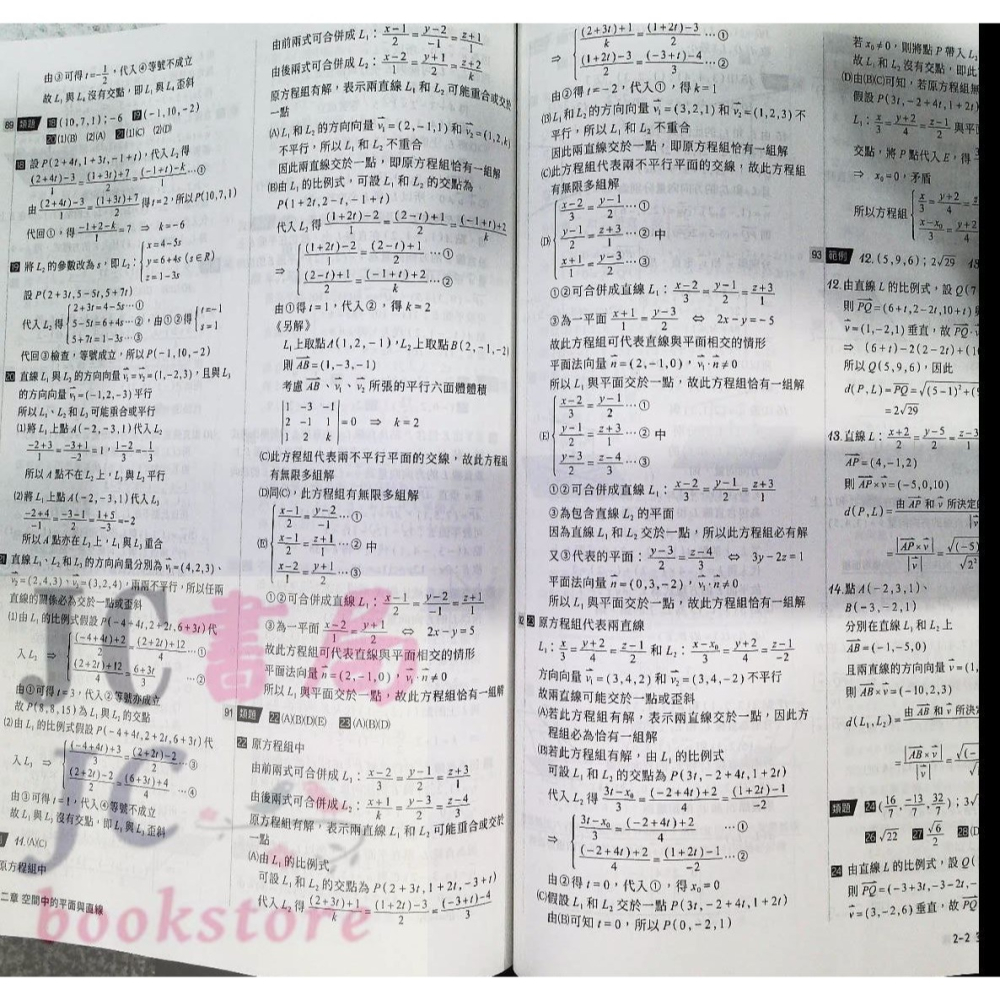 由③可得 t=-1/2,代入④等號不成立
故 L₁ 與 L₄ 沒有交點,即 L₁ 與 L₄ 歪斜
89 類題 18 (10,7,1);-6 19 (-1,10,-2)
20 (1)(B) (2)(A) 21 (1)(C) (2)(D)
18 設 P(2+4t,1+3t,-1+t),代入 L₂ 得
(2+4t)-3/1=(1+3t)+7/2=(-1+t)-k/1…①
由 (2+4t)-3/1=(1+3t)+7/2 得 t=2,所以 P(10,7,1)
代回①,得 -1+2-k/1=7 ⇒ k=-6
19 將 L₂ 的參數改為 s,即 L₂:{x=4-5s
y=6+4s (s∈R)
z=1-3s
設 P(2+3t,5-5t,5+7t)
代入 L₂ 得{2+3t=4-5s…①
5-5t=6+4s…②,由①②得{t=-1
s=1
5+7t=1-3s…③
代回③檢查,等號成立,所以 P(-1,10,-2)
20 直線 L₁ 與 L₂ 的方向向量 v₁=v₂=(1,-2,3),且與 L₃
的方向向量 =(-1,2,-3) 平行
所以 L₁、L₂ 和 L₃ 可能重合或平行
(1)將 L₁ 上點 A(-2,-3,1) 代入 L₂
-2+3/1=-3+1/-2=1,1-2/3=-1/3
所以 A 點不在 L₂ 上,L₁ 與 L₂ 平行
(2)將 L₁ 上點 A(-2,-3,1) 代入 L₃
-2+4/-1=-3-1/2=1+5/-3=-2
所以 A 點亦在 L₃ 上,L₁ 與 L₃ 重合
21 直線 L₁、L₂ 和 L₃ 的方向向量分別為 v₁=(4,2,3)、
v₂=(2,4,3)、v₃=(3,2,4),兩兩不平行,所以任兩
直線的關係必為交於一點或歪斜
(1)由 L₁ 的比例式假設 P(-4+4t,2+2t,6+3t) 代
入 L₂ ⇒ {(-4+4t)+2/2=(2+2t)+12/4…①
(2+2t)+12/4=6+3t/3…②
由①可得 t=3,代入②等號亦成立
故 P(8,8,15) 為 L₁ 與 L₂ 的交點
(2)由 L₁ 的比例式假設 P(-4+4t,2+2t,6+3t) 代
入 L₃ ⇒ {(-4+4t)+3/3=(2+2t)-2/2…③
(2+2t)-2/2=(6+3t)+4/4…④
由③可得 t=1,代入④等號不成立
故 L₁ 與 L₃ 沒有交點,即 L₁ 與 L₃ 歪斜
11. (A)(C)
原方程組中
二章 空間中的平面與直線
由前兩式可合併成 L₁:x-1/2=y-2/-1=z+1/1
由後兩式可合併成 L₂:x-2/1=y+1/2=z+2/k
原方程組有解,表示兩直線 L₁ 和 L₂ 可能重合或交於
一點
(A) L₁ 和 L₂ 的方向向量 v₁=(2,-1,1) 和 v₂=(1,2,k)
不平行,所以 L₁ 和 L₂ 不重合
因此兩直線交於一點,即原方程組恰有一組解
(B)由 L₁ 的比例式,可設 L₁ 和 L₂ 的交點為
P(1+2t,2-t,-1+t)
代入 L₂ 得 (1+2t)-2/1=(2-t)+1/2=(-1+t)+2/k
⇒ {(1+2t)-2/1=(2-t)+1/2…①
(2-t)+1/2=(-1+t)+2/k…②
由①得 t=1,代入②,得 k=2
《另解》
L₁ 上取點 A(1,2,-1),L₂ 上取點 B(2,-1,-2)
則 AB=(1,-3,-1)
考慮 AB、v₁、v₂ 所張的平行六面體體積
|1 -3 -1|
|2 -1 1|=0 ⇒ k=2
|1 2 k|
(C)此方程組代表兩不平行平面的交線,故此方程組
有無限多組解
(D)同(C),此方程組有無限多組解
(E){x-1/2=y-2/-1…①
x-1/2=z+1/1…② 中
x-2/1=y+1/2…③
①②可合併成直線 L₁:x-1/2=y-2/-1=z+1/1
③為一平面 x-2/1=y+1/2 ⇔ 2x-y=5
故此方程組可代表直線與平面相交的情形
平面法向量 n=(2,-1,0),v₁·n≠0
所以 L₁ 與平面交於一點,故此方程組恰有一組解
91 類題 22 (A)(B)(D)(E) 23 (A)(B)(D)
22 原方程組中
由前兩式可合併成 L₁:x-2/3=y-1/2=z+3/1
由後兩式可合併成 L₂:x+1/1=y-3/2=z-4/3
原方程組有解,表示兩直線 L₁ 和 L₂ 可能重合或交於
一點
(A)由 L₁ 的比例式
可設 L₁ 和 L₂ 的交點為 P(2+3t,1+2t,-3+t)
代入 L₂ 得 (2+3t)+1/k=(1+2t)-3/2=(-3+t)-4/3
⇒ {(2+3t)+1/k=(1+2t)-3/2…①
(1+2t)-3/2=(-3+t)-4/3…②
由②得 t=-2,代入①,得 k=1
(B) L₁ 和 L₂ 的方向向量 v₁=(3,2,1) 和 v₂=(1,2,3) 不
平行,所以 L₁ 和 L₂ 不重合
因此兩直線交於一點,即原方程組恰有一組解
(C)此方程組代表兩不平行平面的交線,故此方程組
有無限多組解
(D){x-2/3=y-1/2…①
y-1/2=z+3/1…② 中
x+1/1=y-3/2…③
①②可合併成直線 L₁:x-2/3=y-1/2=z+3/1
③為一平面 x+1/1=y-3/2 ⇔ 2x-y=-5
故此方程組可代表直線與平面相交的情形
平面法向量 n=(2,-1,0),v₁·n≠0
所以 L₁ 與平面交於一點,故此方程組恰有一組解
(E){x-2/3=y-1/2…①
y-1/2=z+3/1…② 中
y-3/2=z-4/3…③
①②可合併成直線 L₁:x-2/3=y-1/2=z+3/1
③為包含直線 L₂ 的平面
因為直線 L₁ 和 L₂ 交於一點,所以此方程組必有解
又③代表的平面:y-3/2=z-4/3 ⇔ 3y-2z=1
平面法向量 n=(0,3,-2),v₁·n≠0
所以 L₁ 與平面交於一點,故此方程組恰有一組解
23 原方程組代表兩直線
L₁:x/3=y+2/4=z-1/2 和 L₂:x-x₀/3=y+2/4=z-1/-2
方向向量 v₁=(3,4,2) 和 v₂=(3,4,-2) 不平行
故兩直線可能交於一點或歪斜
(A)若此方程組有解,表示兩直線交於一點,因此方
程組必為恰有一組解
(B)若此方程組有解,由 L₁ 的比例式
可設 L₁ 和 L₂ 的交點為 P(3t,-2+4t,1+2t)
代入 L₂ 得 3t-x₀/3=(-2+4t)+2/4=(1+2t)-1/-2
⇒ {3t-x₀/3=(-2+4t)+2/4…①
(-2+4t)+2/4=(1+2t)-1/-2…②
由②得 t=0,代入①,得 x₀=0
(C)假設 L₁ 和 L₂ 交於一點 P(3t,-2+4t,1+2t)
由(B)可知 t=0,所以 P(0,-2,1)
若 x₀≠0,則將點 P 帶入 L₂
故 L₁ 和 L₂ 沒有交點,即此
(D)由(B)(C)可知,若原方程組無
假設 P(3t,-2+4t,1+2t)
L₁:x/3=y+2/4=z-1/2 與平
交點,將 P 點代入 E,得
⇒ x₀=0,矛盾
所以方程組{x/3=y+2/4=
x-x₀/3=y+2
93 範例 12. (5,9,6);2√29 13
12. 由直線 L 的比例式,設 Q(7
則 PQ=(6+t,2-2t,10+t)
v=(1,-2,1) 垂直,故 PQ·
⇒ (6+t)-2(2-2t)+(1
所以 Q(5,9,6),因此
d(P,L)=PQ=√(5-1)²+(9
=2√29
13. 直線 L:x+2/=y-5/=z-3
AP=(4,-1,2)
則 AP×v=(-5,0,10)
d(P,L)=由 AP 和 v 所決定
=|AP×v|/|v|=√(-5)/√2²
14. 點 A(-2,3,1)、
B(-3,-2,1)
分別在直線 L₁ 和 L₂ 上
AB=(-1,-5,0)
且兩直線的方向向量 v=(1,
則 AB×v=(-10,2,3)
d(L₁,L₂)=由 AB 和 v 所決
|AB×v|/|v|=√(-
類題 24 (16/7,-13/7,32/7);3√
26 √22 27 √6/2 28 (D
24 由直線 L 的比例式,設 Q(
則 PQ=(-3+3t,-3-2t,-
v=(3,-2,6) 垂直,故 PQ
2-2
JC 書局
JC
bookstore